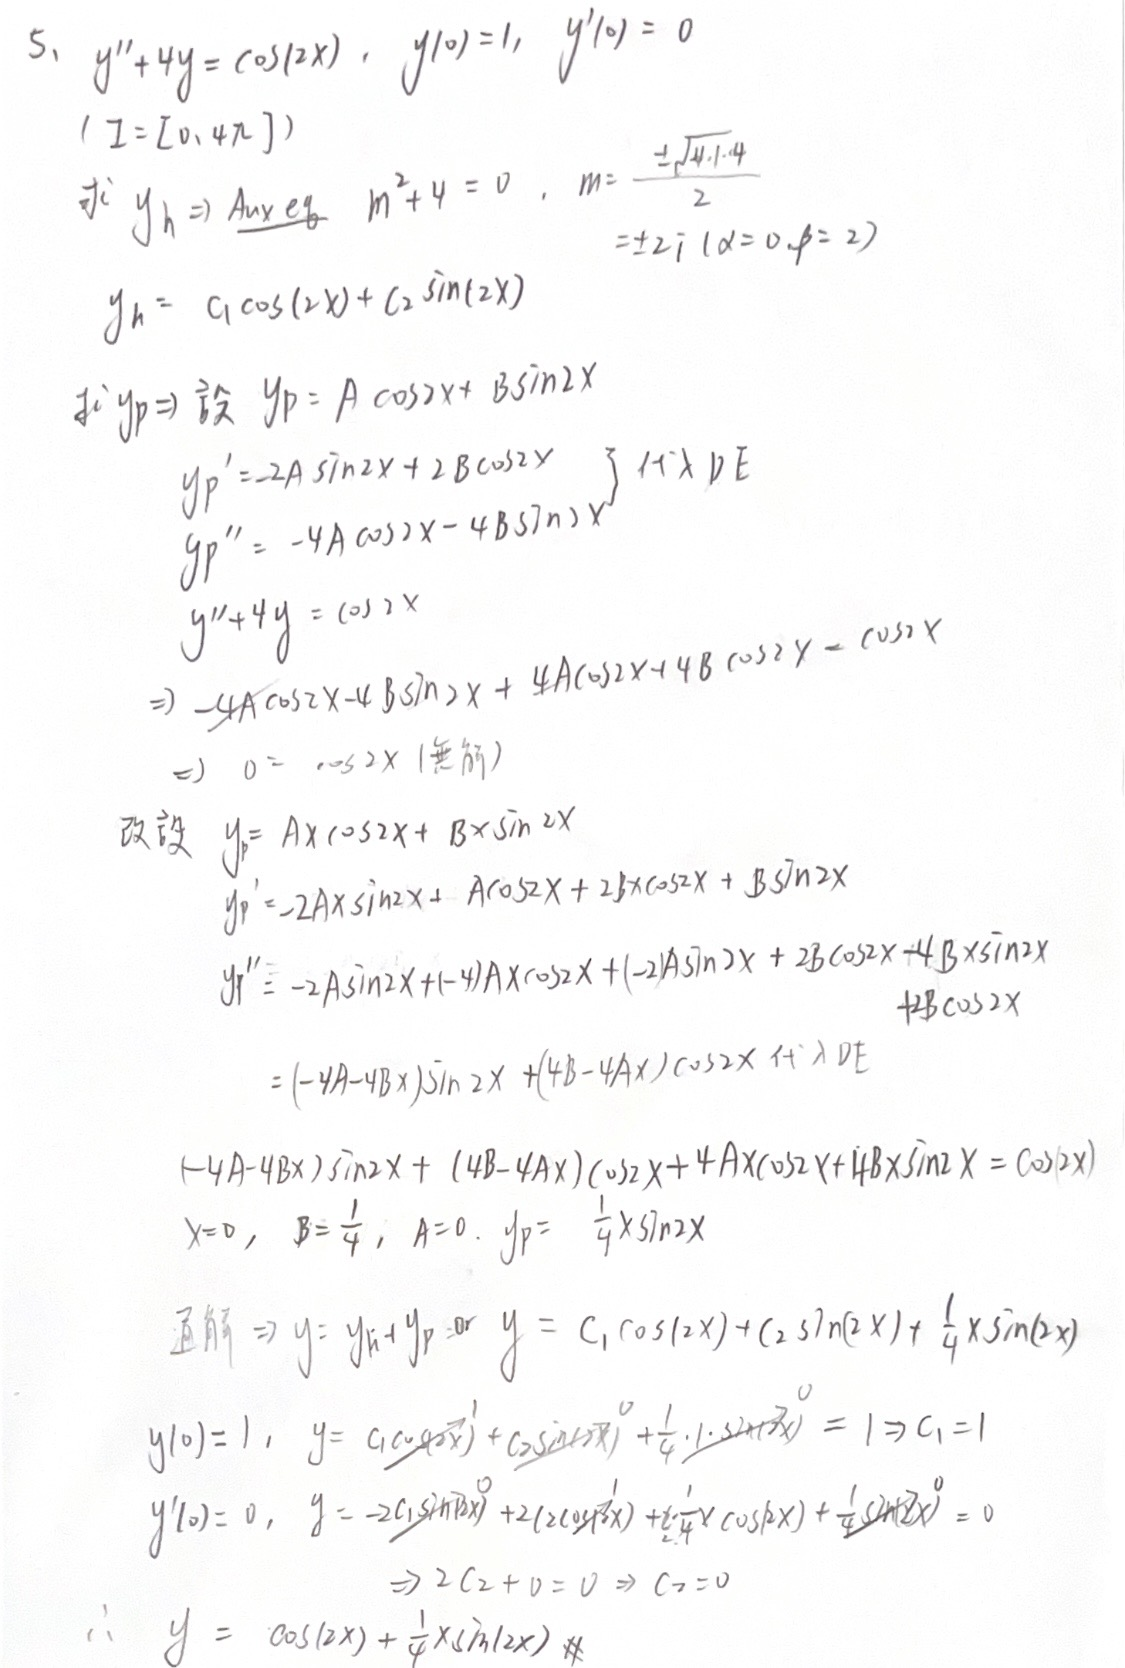 5. y''+4y = cos(2x), y(0)=1, y'(0)=0
(I=[0, 4π])
求 yh ⇒ Aux eq m²+4=0, m= ±√4·1·4 / 2
=±2i (α=0, β=2)
yh = C1cos(2x)+C2 sin(2x)
求 yp ⇒ 設 yp = A cos2x+ Bsin2x
yp' = -2A sin2x + 2Bcos2x } 代入 DE
yp'' = -4A cos2x - 4Bsin2x
y''+4y = cos2x
⇒ -4A cos2x-4Bsin2x + 4Acos2x+4B cos2x = cos2x
⇒ 0 = cos2x (無解)
改設 yp= Ax cos2x+ Bx sin 2x
yp' = -2Ax sin2x + Acos2x + 2Bxcos2x + Bsin2x
yp'' = -2Asin2x+(-4)Axcos2x+(-2)Asin2x + 2Bcos2x+-4Bxsin2x
+2Bcos2x
= (-4A-4Bx)sin2x +(4B-4Ax)cos2x 代入DE
(-4A-4Bx)sin2x + (4B-4Ax)cos2x+4Axcos2x+4Bxsin2x = cos(2x)
x=0, B=1/4, A=0. yp= 1/4 x sin2x
通解 ⇒ y= yh+yp or y = C1cos(2x)+C2 sin(2x)+ 1/4 x sin(2x)
y(0)=1, y= C1cos(2x)¹ + C2sin(2x)⁰ + 1/4·1·sin(2x)⁰ = 1 ⇒ C1=1
y'(0)=0, y= -2C1sin(2x)⁰ +2C2cos(2x)¹ +2·1/4x cos(2x) + 1/4 sin(2x)⁰ = 0
⇒ 2C2+0=0 ⇒ C2=0
∴ y = cos(2x)+ 1/4 x sin(2x) #